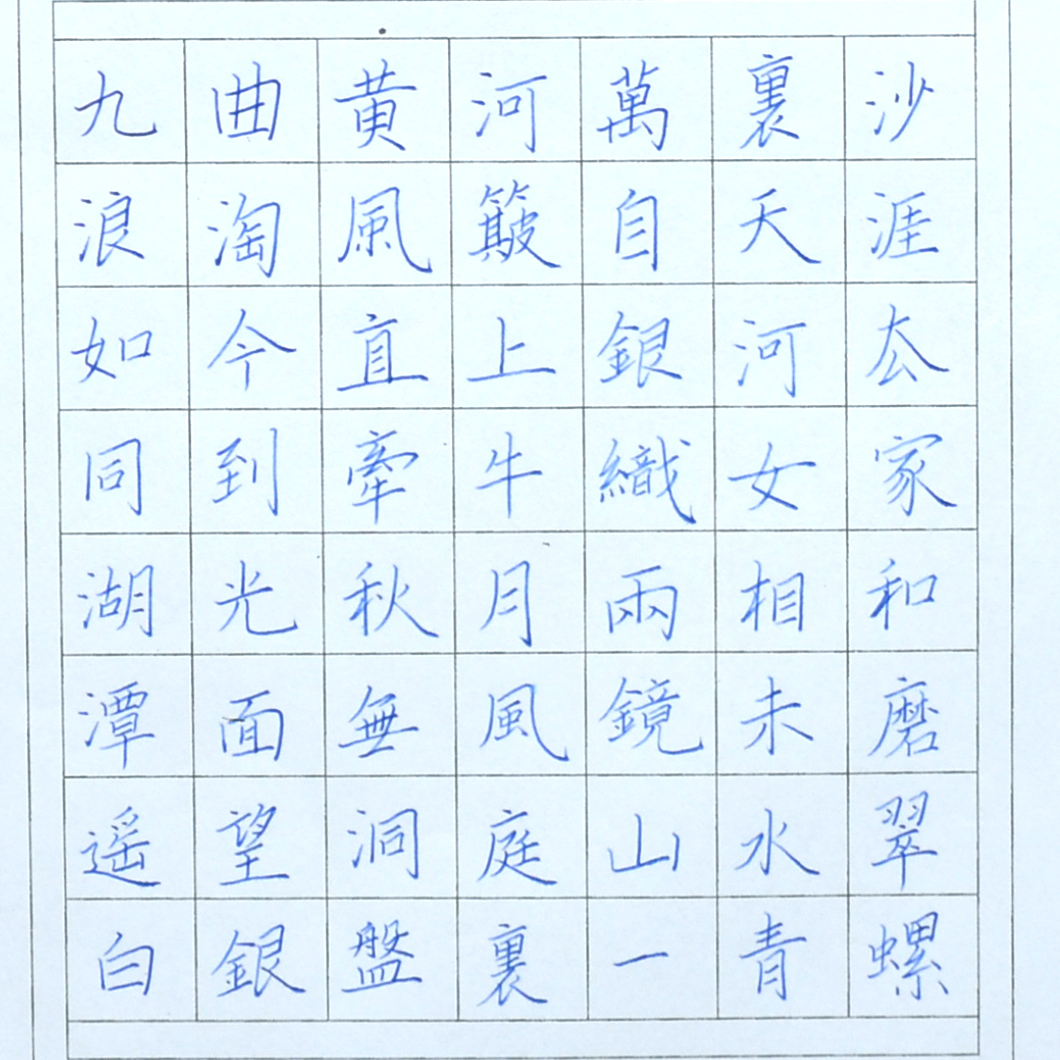 九曲黄河萬裏沙
浪淘風簸自天涯
如今直上銀河厺
同到牽牛織女家
湖光秋月兩相和
潭面無風鏡未磨
遥望洞庭山水翠
白銀盤裏一青螺